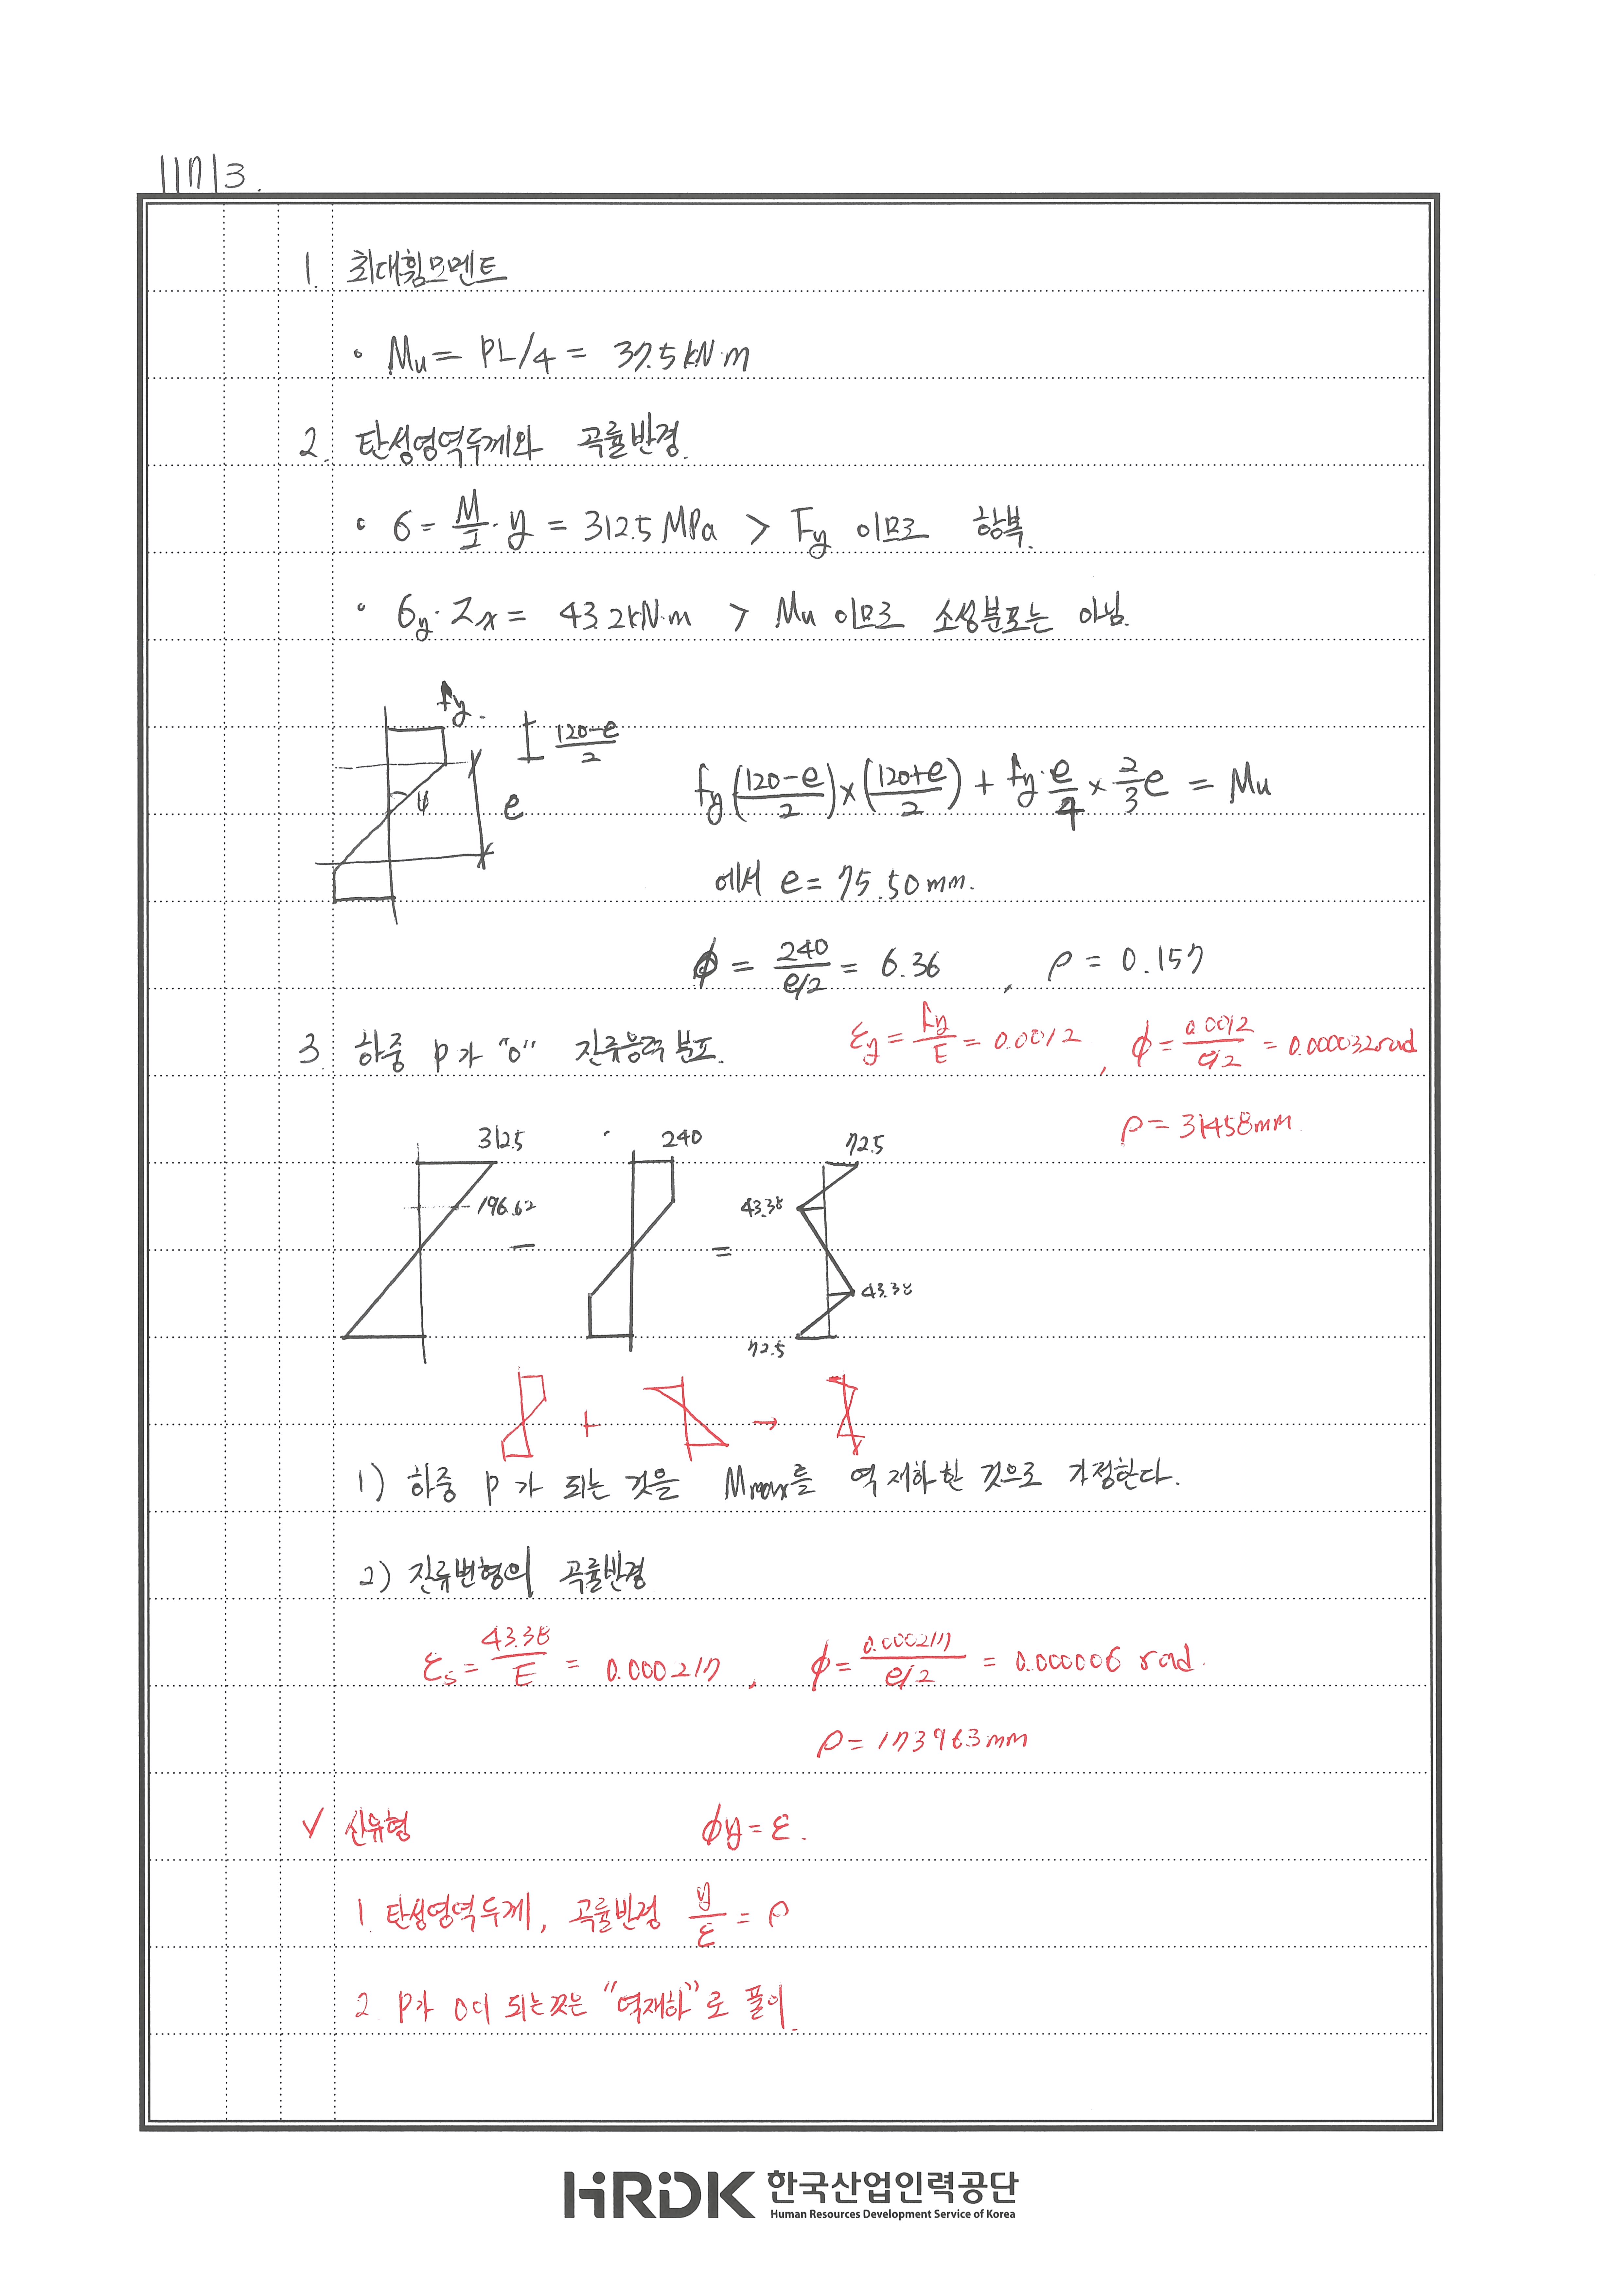 117|3.
1. 최대휨모멘트
• Mu = PL/4 = 37.5kN·m
2. 탄성영역두께와 곡률반경.
• σ = M/I · y = 312.5MPa > Fy 이므로 항복.
• σy·Zx = 43.2kN·m > Mu 이므로 소성분포는 아님.
fy.
(120-e)/2
ψ
e
fy((120-e)/2)×((120+e)/2) + fy·e/4 × 2/3e = Mu
에서 e = 75.50mm.
ϕ = 240/(e/2) = 6.36, ρ = 0.157
3. 하중 P가 "0" 잔류응력분포.
εy = fy/E = 0.0012, ϕ = 0.0012/(e/2) = 0.000032rad
ρ = 31458mm
312.5 240 72.5
196.62 43.38
− =
43.38
72.5
+ →
1) 하중 P가 되는 것을 Mmax를 역재하한 것으로 가정한다.
2) 잔류변형의 곡률반경
εs = 43.38/E = 0.000217, ϕ = 0.000217/(e/2) = 0.000006 rad.
ρ = 173963mm
✓ 신유형 ϕy = ε.
1. 탄성영역두께, 곡률반경 y/ε = ρ
2. P가 0이 되는것은 "역재하"로 풀이.
HRDK 한국산업인력공단
Human Resources Development Service of Korea